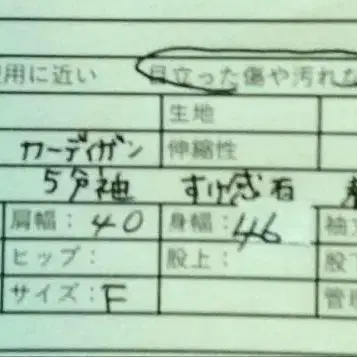 用に近い 目立った傷や汚れな
生地
カーディガン 伸縮性
5分袖 すけ感 有
肩幅：40 身幅：46 袖
ヒップ： 股上： 股下
サイズ：F 管理